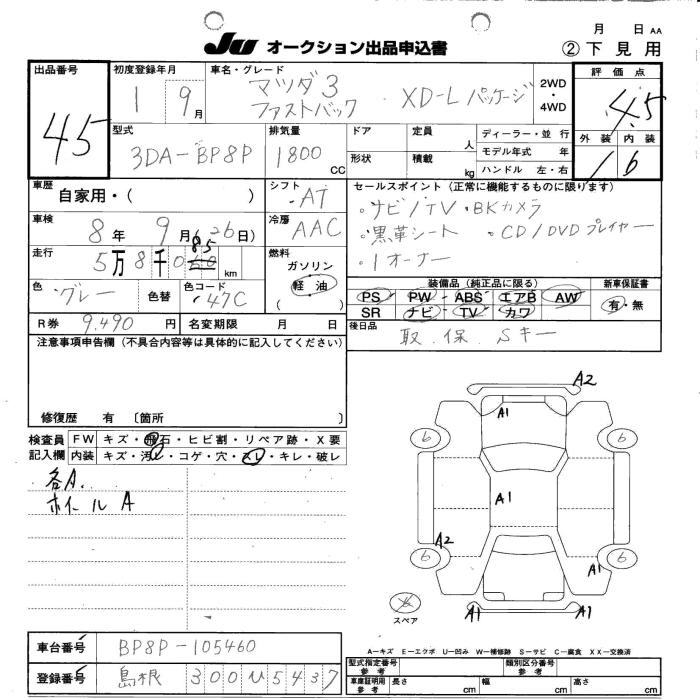 月 日 AA
JU オークション出品申込書 ② 下見用
出品番号 45
初度登録年月 1 9月
車名・グレード マツダ3 ファストバック XD-L パッケージ
2WD・4WD
評価点 4.5
外装 内装
1 6
型式 3DA-BP8P
排気量 1800 CC
ドア 定員 人
形状 積載 kg
ディーラー・並行
モデル年式 年
ハンドル 左・右
車歴 自家用・( )
シフト AT
セールスポイント (正常に機能するものに限ります)
車検 8年 9月(26日)
冷房 AAC
。ナビ/TV・BKカメラ
。黒革シート 。CD/DVDプレイヤー
。1オーナー
走行 5万8千085km
燃料 ガソリン 軽油 ( )
色 グレー 色替 色コード 47C
装備品 (純正品に限る)
PS PW ABS エアB AW
SR ナビ TV カワ
新車保証書 有・無
R券 9,490円 名変期限 月 日
後日品 取.保.Sキー
注意事項申告欄(不具合内容等は具体的に記入してください)
修復歴 有 〔箇所 〕
検査員記入欄
FW キズ・飛石・ヒビ割・リペア跡・X要
内装 キズ・汚レ・コゲ・穴・スレ・キレ・破レ
各A.
ホイールA
A2
A1
6 6
A1
A2
6 6
A1
スペア
A1 A1
A-キズ E-エクボ U-凹み W-補修跡 S-サビ C-腐食 XX-交換済
車台番号 BP8P-105460
登録番号 島根 300 ひ 5437
型式指定番号 参考 類別区分番号 参考
車庫証明用 参考 長さ cm 幅 cm 高さ cm